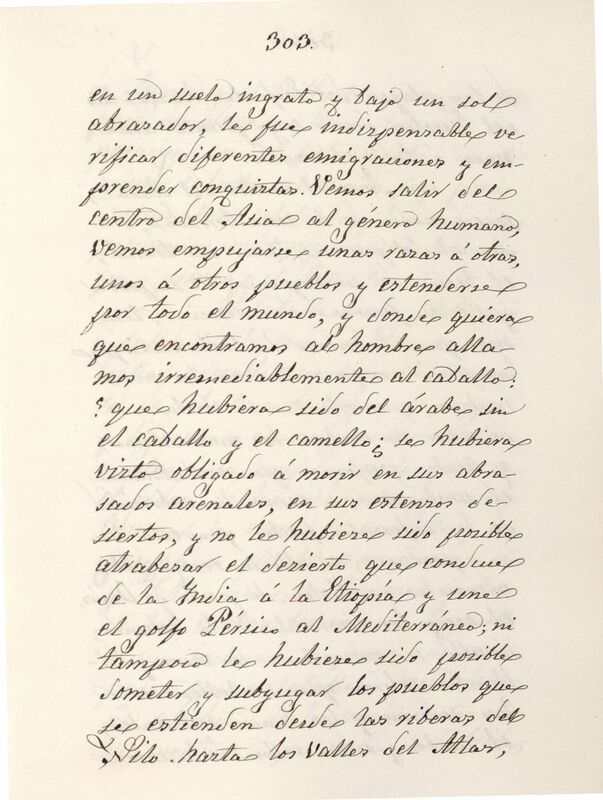 303.
en un suelo ingrato y bajo un sol
abrazador, le fue indizpenzable ve
rificar diferentes emigraciones y em-
prender conquiztas. Vemos salir del
centro del Asia al género humano,
vemos empujarse unas razas á otras,
unos á otros pueblos y estenderse
por todo el mundo, y donde quiera
que encontramos al hombre alla-
mos irremediablemente al caballo:
¿que hubiera sido del árabe sin
el caballo y el camello? se hubiera
vizto obligado á morir en sus abra-
sados arenales, en sus estenzos de-
siertos, y no le hubiere sido posible
atrabezar el dezierto que conduce
de la India á la Etiopía y une
el golfo Pérsico al Mediterráneo; ni
tampoco le hubiere sido posible
someter y subyugar los pueblos que
se estienden desde las riberas del
Nilo hazta los valles del Atlas,